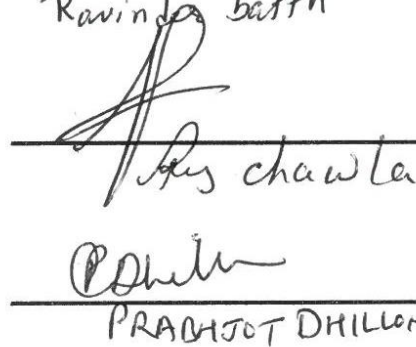 Ravinder batth
chawla
PDhillon
PRABHJOT DHILLON